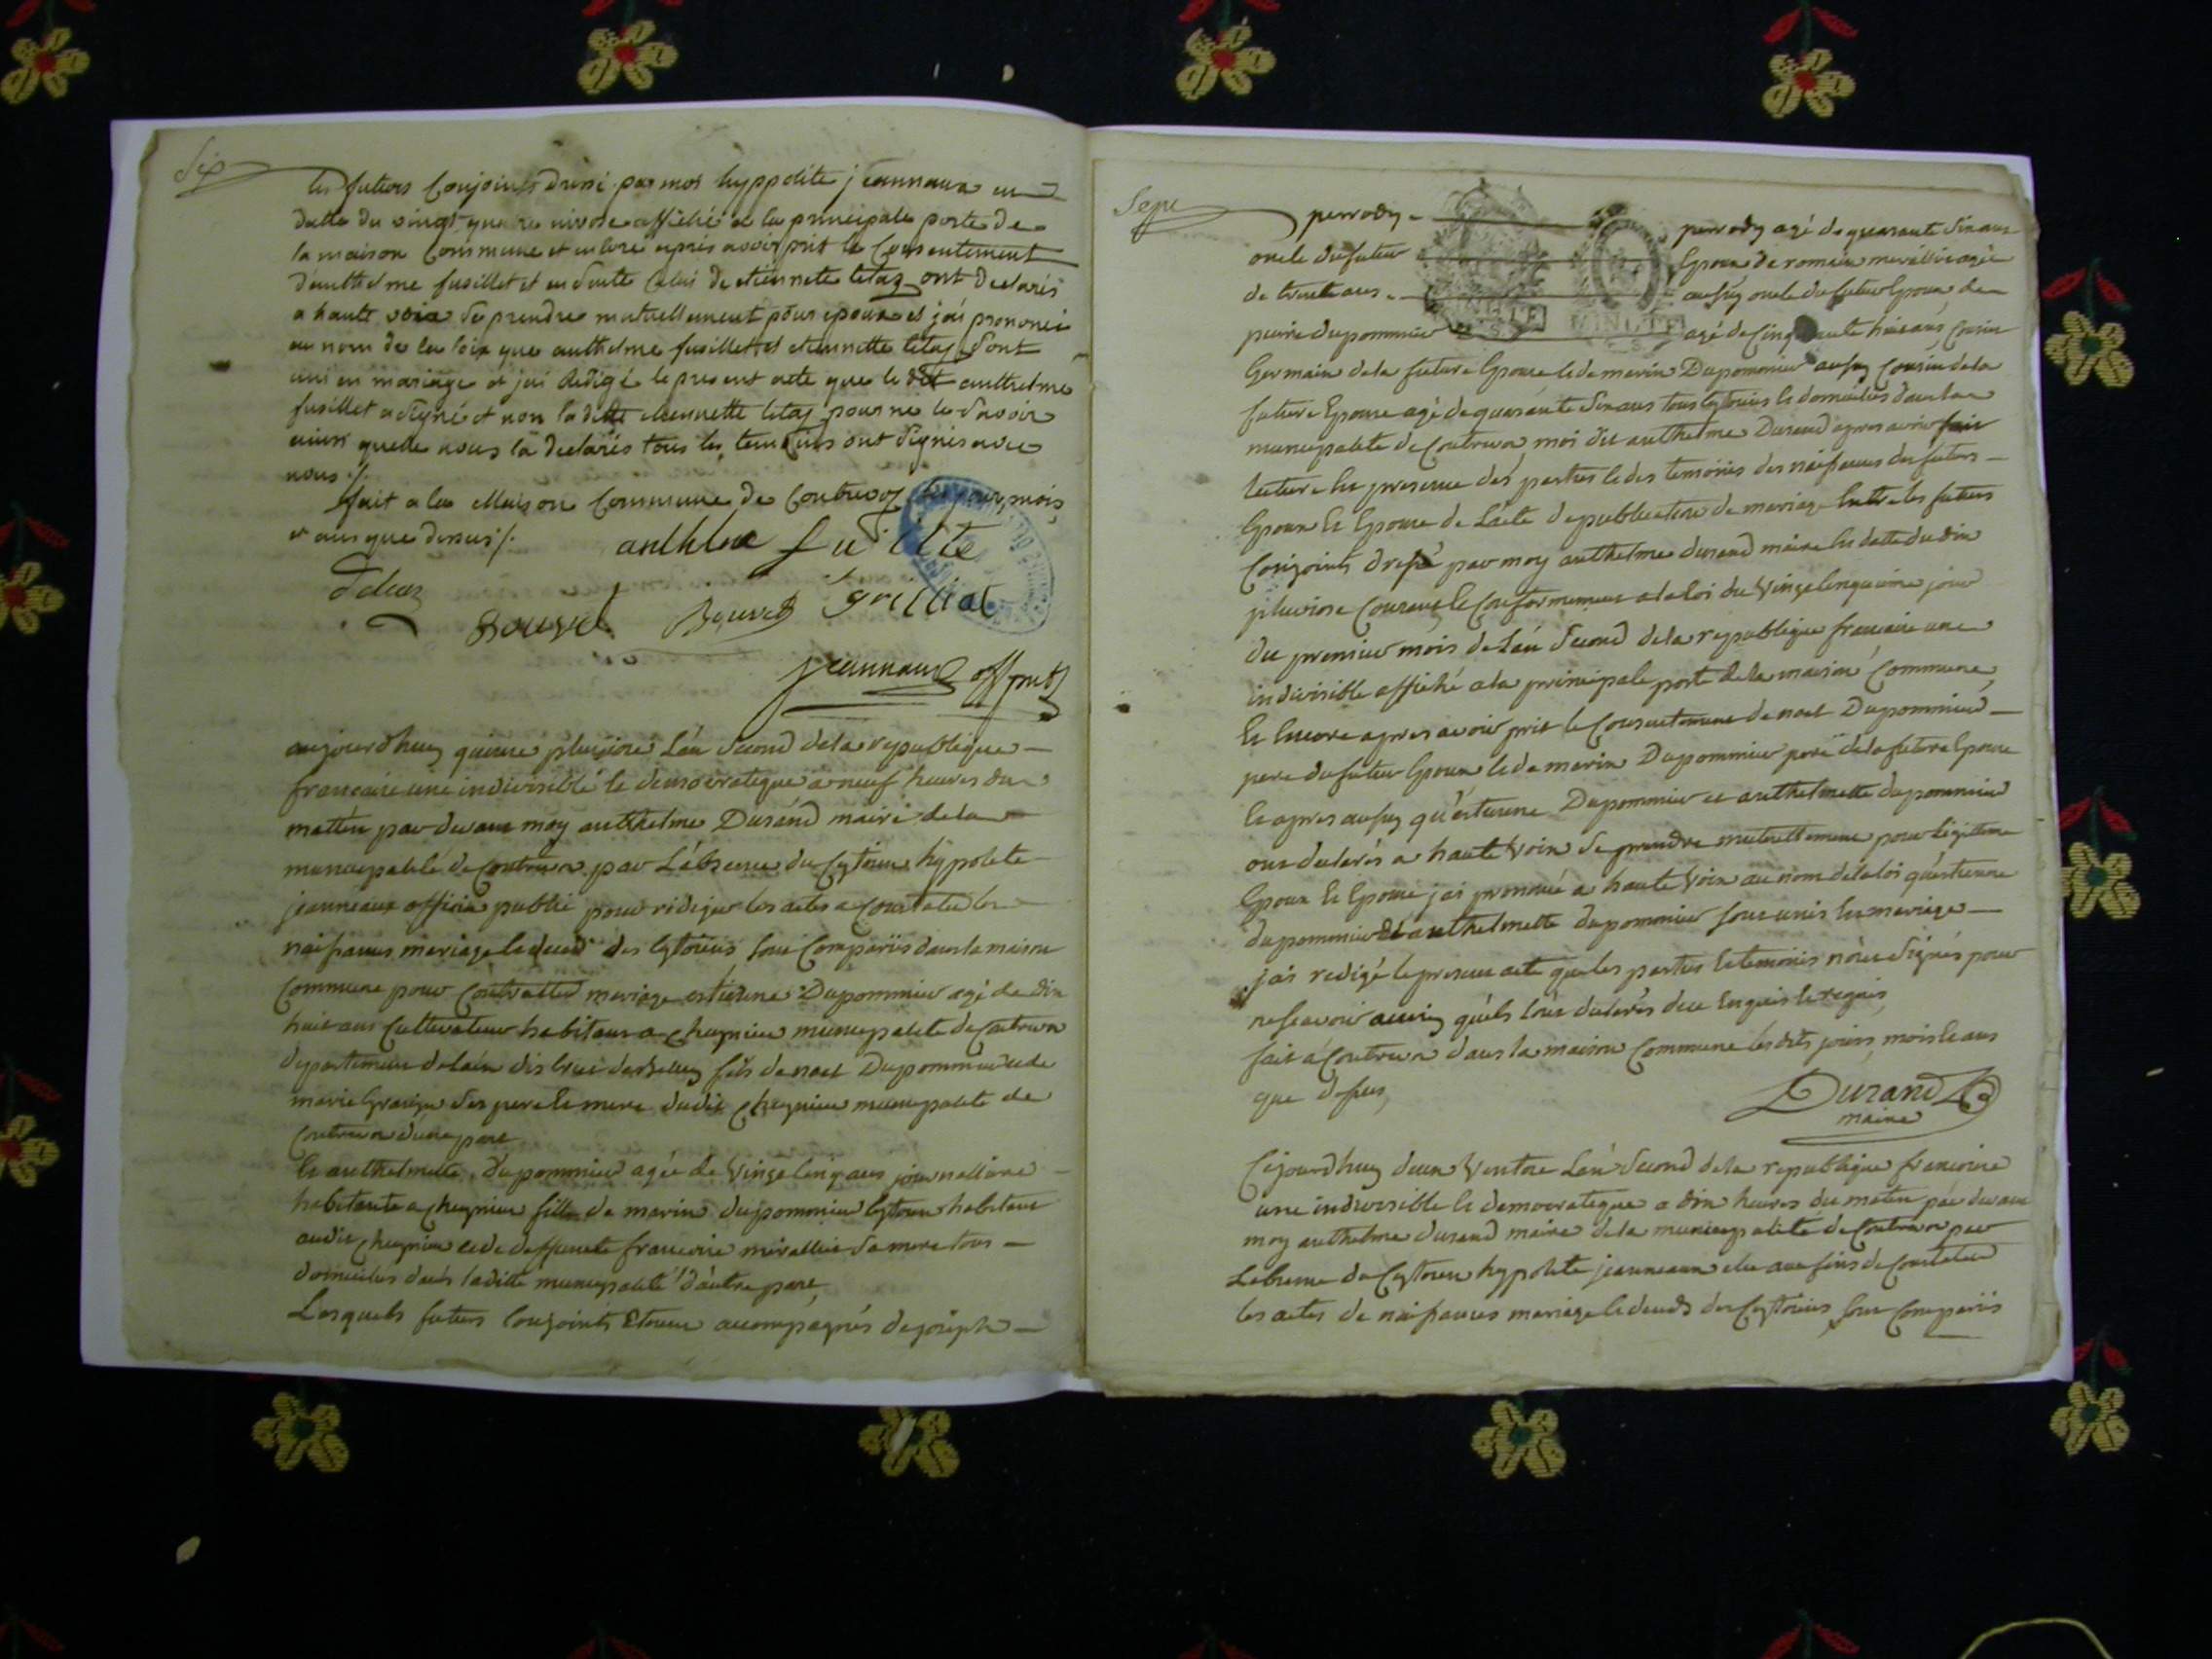 Six
les futurs Conjoints dréssé par moi hyppolite jeannaux en
datte du vingt quatre nivose affiché a la principale porte de
la maison Commune et enlore après avoir prit le Consentement
d'anthelme fusillet et ensuite Celui de etiennette litaz ont declarés
a haute voix de prendre mutuellement pour epoux et j'ai prononcé
au nom de la loix que anthelme fusillet et etiennette litaz sont
uni en mariage et jai redigé le present acte que le dit anthelme
fusillet a signé et non la ditte etiennette litaz pour ne le savoir
ainsi quelle nous la declarés tous les temoins ont signés avec
nous ./.
fait a la Maison Commune de Contrevoz les jour, mois
et ans que dessus ./.
anthelme fusillte
Bouvet Bouvet grilliat
jeannaux off pub
aujourdhuy quinze pluviose L'an second de la republique
francaise une indivisible et democratique a neuf heures du
mattin par devant moy anthelme Durand maire de la
municipalité de Contrevoz par L'absence du Cytoien hypolite
jeanneaux officier public pour rediger les actes a Constater les
naissances mariage et deces des Cytoiens sont Comparüs dans la maison
Commune pour Contracter mariage estienne Dupommier agé de dix
huit ans Cultivateur habitans a Cheygnieu municipalité de Contrevoz
departement de lain district de belley fils de noel Dupommier et de
marie ses pere et mere dudit Cheygnieu municipalité de
Contrevoz d'une part
Et anthelmette Dupommier agée de Vingt Cinq ans journalliere
habitante a Cheygnieu fille de marin dupommier Cytoien habitant
audit Cheygnieu et de deffuncte francoise mirallier sa mere tous
domiciliés dans laditte municipalité d'autre part,
Lesquels futurs Conjoints etoient accompagnés de joseph
Sept
perrody perrody agé de quarante six ans
oncle du futur Epoux de romain mirallier agé
de trente ans aussy oncle du futur Epoux de
pierre dupommier agé de Cinquante huit ans, Cousin
Germain de la future Epouse et de marin Dupommier aussy Cousin de la
future Epouse agé de quarante six ans tous Cytoiens et domiciliés dans la
municipalité de Contrevoz moi dit anthelme Durand apres avoir fait
lecture En presence des parties et des temoins des naissances des futurs
Epoux Et Epouse de L'acte de publication de mariage Entre les futurs
Conjoints dressé par moy anthelme durand maire En datte du dix
pluviose Courant et Conformement a la loi du Vingt Cinquieme jour
du premier mois de L'an second de la republique francaise une
indivisible affiché a la principale porte de la maison Commune,
Et Encore apres avoir prit le Consentement de noel Dupommier
pere du futur Epoux et de marin Dupommier pere de la future Epouse
Et apres aussy qu'estienne Dupommier et anthelmette dupommier
ont declarés a haute Voix se prendre mutuellement pour Légitime
Epoux Et Epouse jai prononcé a haute Voix au nom de la loi qu'estienne
dupommier et anthelmette dupommier sont unis En mariage
jai redigé le present acte que les parties Et temoins n'ont signés pour
ne scavoir ainsy quils l'ont declarés de ce Enquis et requis,
fait a Contrevoz dans la maison Commune lesdits jours, mois et ans
que dessus,
Durand
maire
Cejourdhuy deux Ventose L'an second de la republique francoise
une indivisible Et democratique a dix heures du matin par devant
moy anthelme durand maire de la municipalité de Contrevoz par
Labsence du Cytoien hypolite jeanneaux elu aux fins de Constater
les actes de naissances mariage et deceds des Cytoiens, sont Comparüs